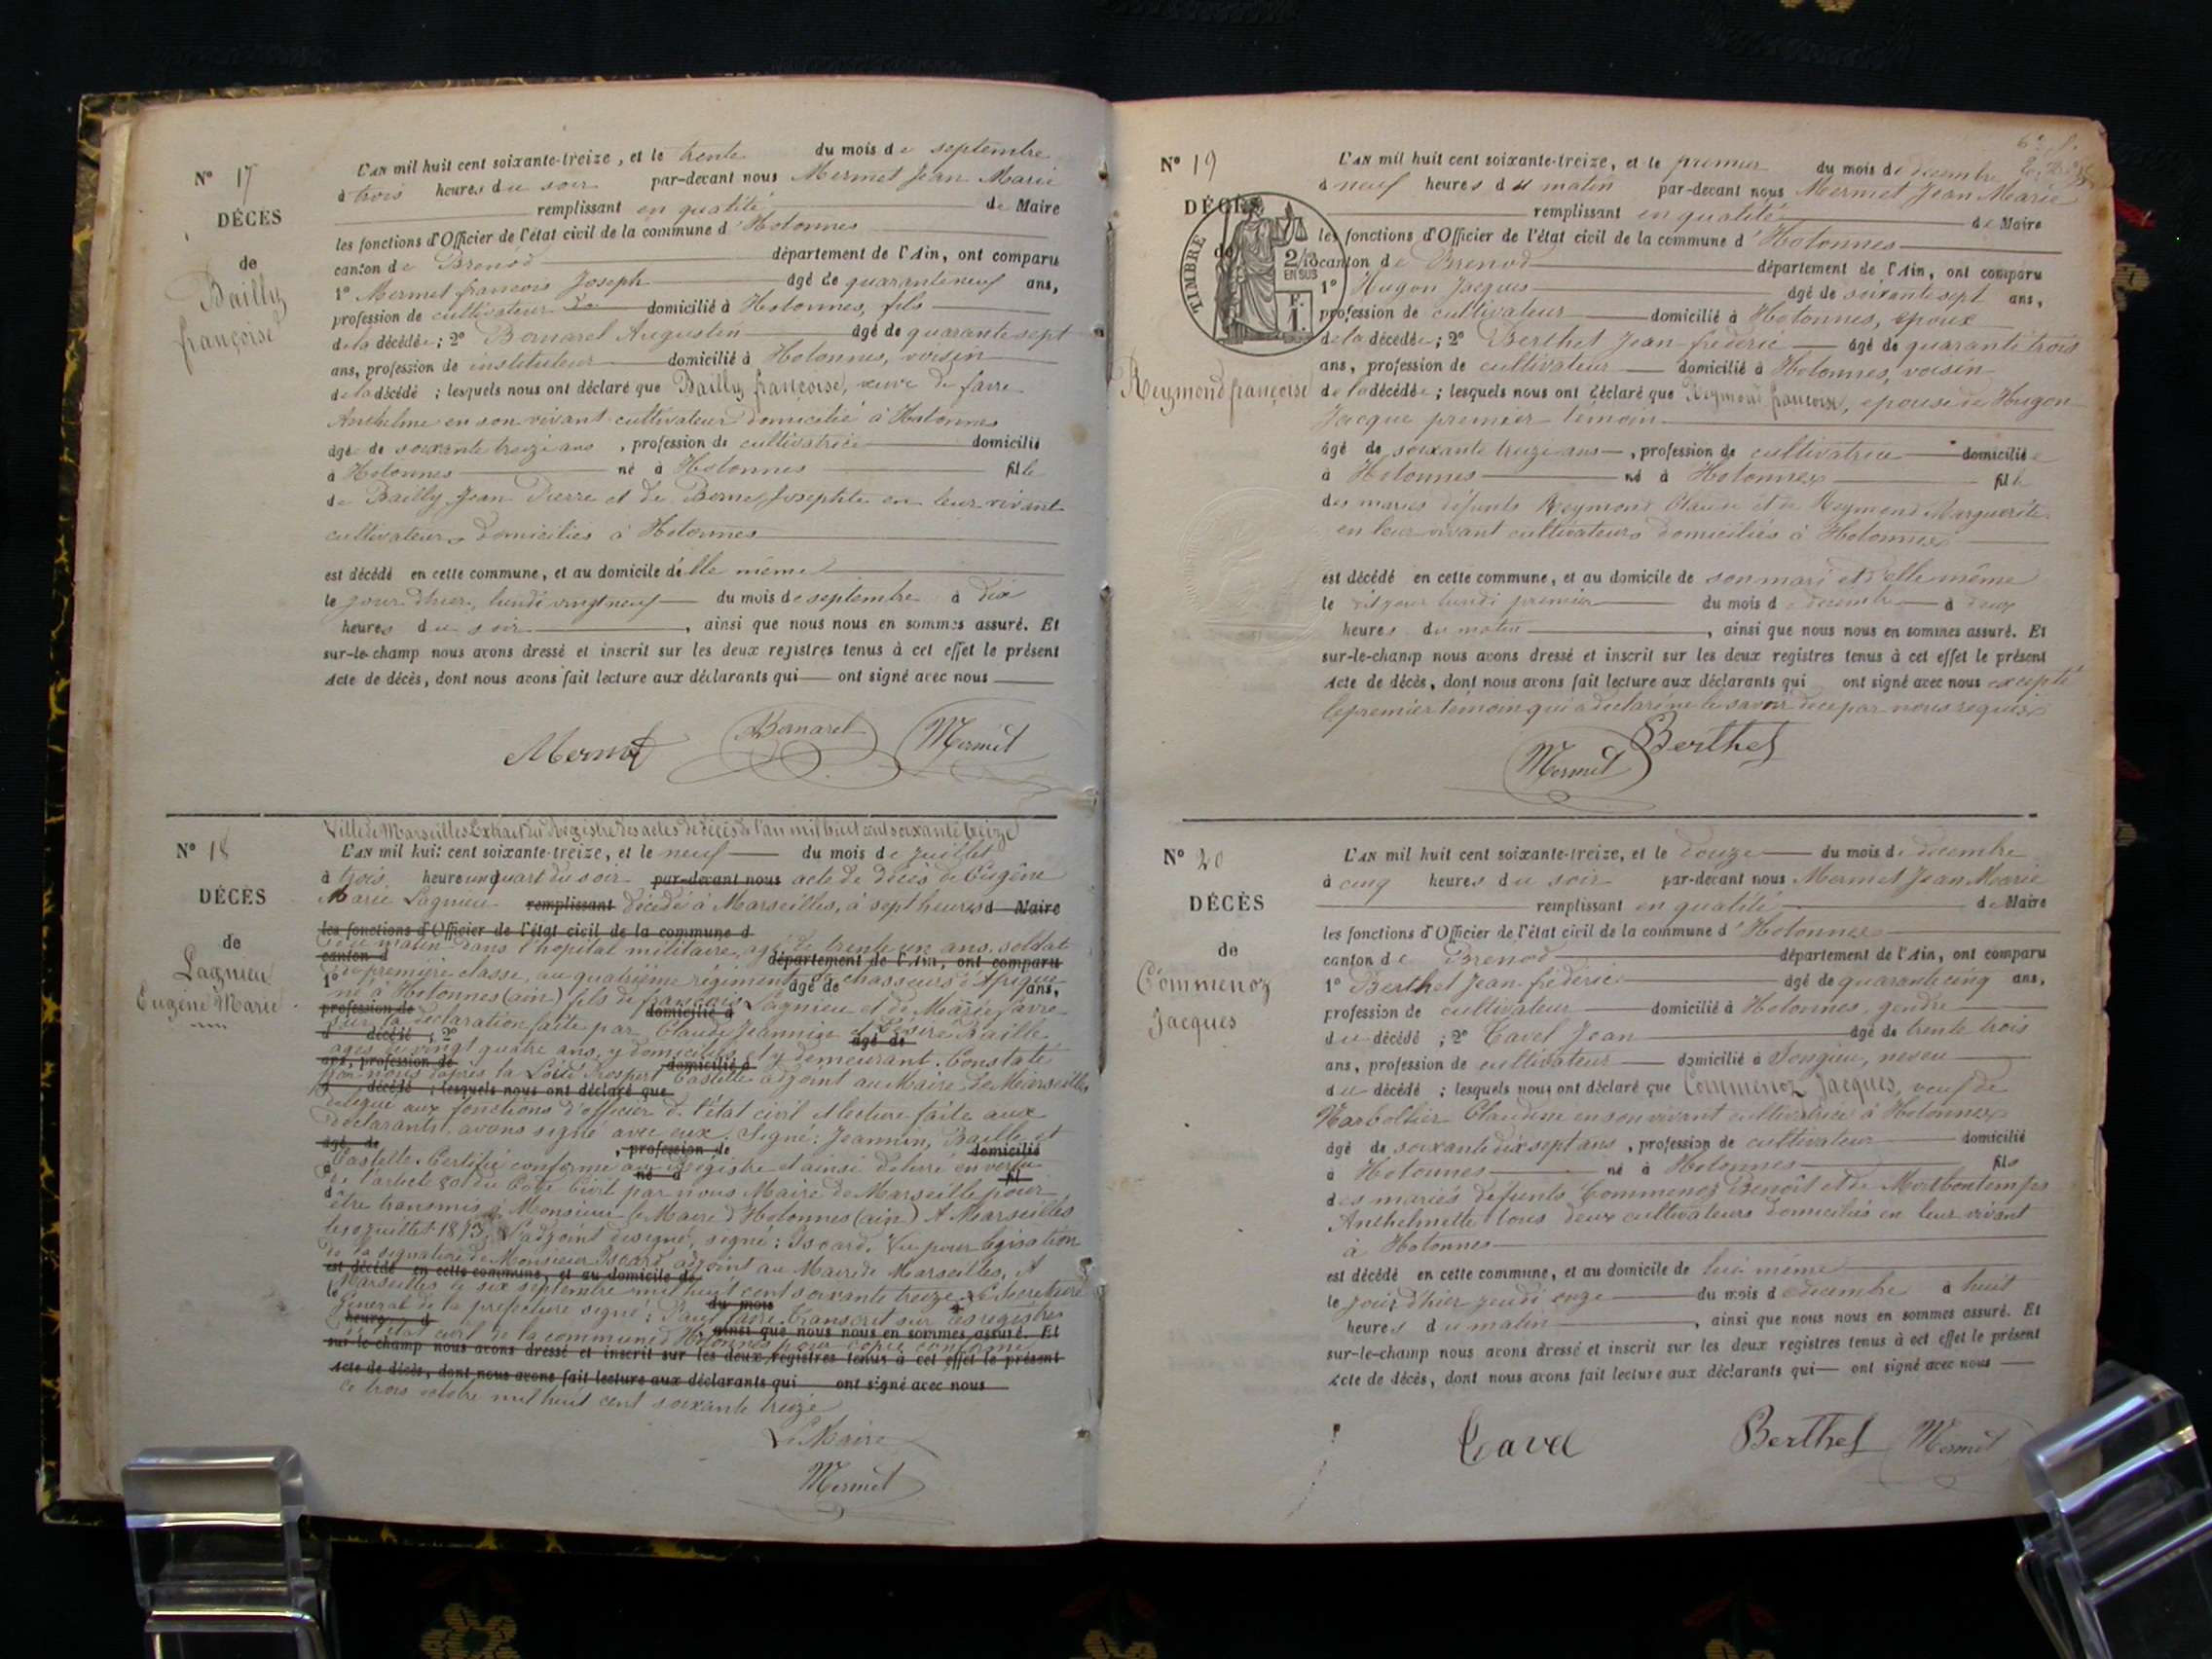 N° 17
DÉCÈS
de
Bailly
françoise
L'AN mil huit cent soixante-treize, et le trente du mois de septembre
à trois heures du soir par-devant nous Mermet Jean Marie
remplissant en qualité de Maire
les fonctions d'Officier de l'état civil de la commune d'Hotonnes
canton de Brenod département de l'Ain, ont comparu
1° Mermet françois Joseph âgé de quaranteneuf ans,
profession de cultivateur domicilié à Hotonnes, fils
de la décédée; 2° Bornarel Augustin âgé de quarante sept
ans, profession de instituteur domicilié à Hotonnes, voisin
de la décédé ; lesquels nous ont déclaré que Bailly françoise, veuve de favre
Anthelme en son vivant cultivateur domicilié à Hotonnes
âgé de soixante treize ans , profession de cultivatrice domicilié
à Hotonnes né à Hotonnes fille
de Bailly Jean Pierre et de Berne Josephte en leur vivant
cultivateurs domiciliés à Hotonnes
est décédé en cette commune, et au domicile d'elle même
le jour d'hier, lundi vingt neuf du mois de septembre à dix
heures du soir , ainsi que nous nous en sommes assuré. Et
sur-le-champ nous avons dressé et inscrit sur les deux registres tenus à cet effet le présent
acte de décès, dont nous avons fait lecture aux déclarants qui ont signé avec nous
Mermet Bornarel Mermet
N° 18
DÉCÈS
de
Lagnieu
Eugène Marie
Ville de Marseilles Extrait du Registre des actes de décès de l'an mil huit cent soixante treize
L'AN mil huit cent soixante-treize, et le neuf du mois de juillet
à trois heure un quart du soir par-devant nous acte de décès de Eugène
Marie Lagnieu remplissant décédé à Marseilles, à sept heures d Maire
les fonctions d'Officier de l'état civil de la commune d
du matin dans l'hopital militaire, agé de trente un ans, soldat
canton d département de l'Ain, ont comparu
de première classe, au quatrième régiment de chasseurs d'Afrique
1° âgé de ans,
né à Hotonnes (ain) fils de françois Lagnieu et de Marie favre
profession de domicilié à
sur la déclaration faite par Claude Jeannin et Désiré Baille
d décédé ; 2° âgé de
agés de vingt quatre ans, y domiciliés et y demeurant. Constaté
ans, profession de domicilié à
par nous d'après la Loi Prospert Castelle adjoint au Maire de Marseilles,
d décédé ; lesquels nous ont déclaré que
délégué aux fonctions d'officier de l'état civil et lecture faite aux
déclarants avons signé avec eux. Signé : Jeannin, Baille et
âgé de , profession de domicilié
Castelle. Certifié conforme au registre et ainsi délivré en vertu
à né à fil
de l'article 80 du Code Civil par nous Maire de Marseille pour
d
être transmis à Monsieur le Maire d'Hotonnes (ain) A Marseilles
juillet 1873. L'adjoint designé, signé : Iscard. Vu pour légisation
de la signature de Monsieur Iscard adjoint au Maire de Marseilles, A
est décédé en cette commune, et au domicile de
Marseilles le six septembre mil huit cent soixante treize. Le Secrétaire
le du mois à
Général de la préfecture signé : Paul favre. Transcrit sur les registres
heure d ainsi que nous nous en sommes assuré. Et
de l'état civil de la commune d'Hotonnes pour copie conforme
sur-le-champ nous avons dressé et inscrit sur les deux registres tenus à cet effet le présent
acte de décès, dont nous avons fait lecture aux déclarants qui ont signé avec nous
ce trois octobre mil huit cent soixante treize
Le Maire
Mermet
N° 19
DÉCÈS
de
Reymond françoise
TIMBRE
2/10
EN SUS
F.
1
L'AN mil huit cent soixante-treize, et le premier du mois de décembre
à neuf heures du matin par-devant nous Mermet Jean Marie
remplissant en qualité de Maire
les fonctions d'Officier de l'état civil de la commune d'Hotonnes
canton de Brenod département de l'Ain, ont comparu
1° Hugon Jacques âgé de soixante sept ans,
profession de cultivateur domicilié à Hotonnes, epoux
de la décédée; 2° Berthet Jean fréderic âgé de quarante trois
ans, profession de cultivateur domicilié à Hotonnes, voisin
de la décédée ; lesquels nous ont déclaré que Reymond francoise, epouse de Hugon
Jacque premier temoin
âgé de soixante treize ans , profession de cultivatrice domiciliée
à Hotonnes né à Hotonnes fille
des mariés défunts Reymond Claude et de Reymond Marguerite
en leur vivant cultivateurs domiciliés à Hotonnes
est décédé en cette commune, et au domicile de son mari et d'elle même
le dit jour lundi premier du mois de décembre à deux
heures du matin , ainsi que nous nous en sommes assuré. Et
sur-le-champ nous avons dressé et inscrit sur les deux registres tenus à cet effet le présent
acte de décès, dont nous avons fait lecture aux déclarants qui ont signé avec nous excepté
le premier témoin qui a déclaré ne le savoir de ce par nous requis
Mermet Berthet
N° 20
DÉCÈS
de
Commenoz
Jacques
L'AN mil huit cent soixante-treize, et le douze du mois de décembre
à cinq heures du soir par-devant nous Mermet Jean Marie
remplissant en qualité de Maire
les fonctions d'Officier de l'état civil de la commune d'Hotonnes
canton de Brenod département de l'Ain, ont comparu
1° Berthet Jean fréderic âgé de quarante cinq ans,
profession de cultivateur domicilié à Hotonnes, gendre
du décédé ; 2° Cavel Jean âgé de trente trois
ans, profession de cultivateur domicilié à Songieu, neveu
du décédé ; lesquels nous ont déclaré que Commenoz Jacques, veuf de
Narboltier Claudine en son vivant cultivatrice à Hotonnes
âgé de soixante dix sept ans , profession de cultivateur domicilié
à Hotonnes né à Hotonnes fils
des mariés défunts Commenoz Benoît et de Montbontemps
Anthelmette tous deux cultivateurs domiciliés en leur vivant
à Hotonnes
est décédé en cette commune, et au domicile de lui même
le jour d'hier jeudi onze du mois de décembre à huit
heures du matin , ainsi que nous nous en sommes assuré. Et
sur-le-champ nous avons dressé et inscrit sur les deux registres tenus à cet effet le présent
acte de décès, dont nous avons fait lecture aux déclarants qui ont signé avec nous
Cavel Berthet Mermet